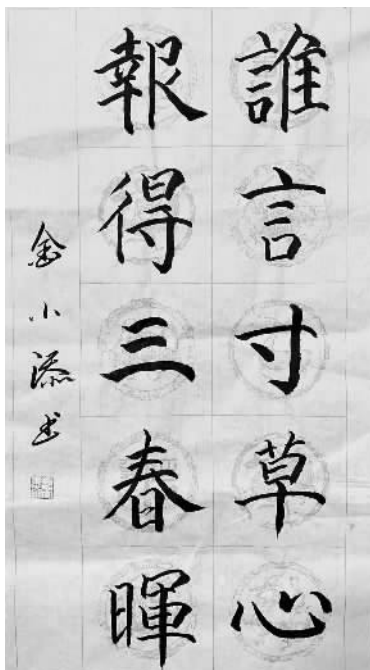 誰言寸草心
報得三春暉
金小添书